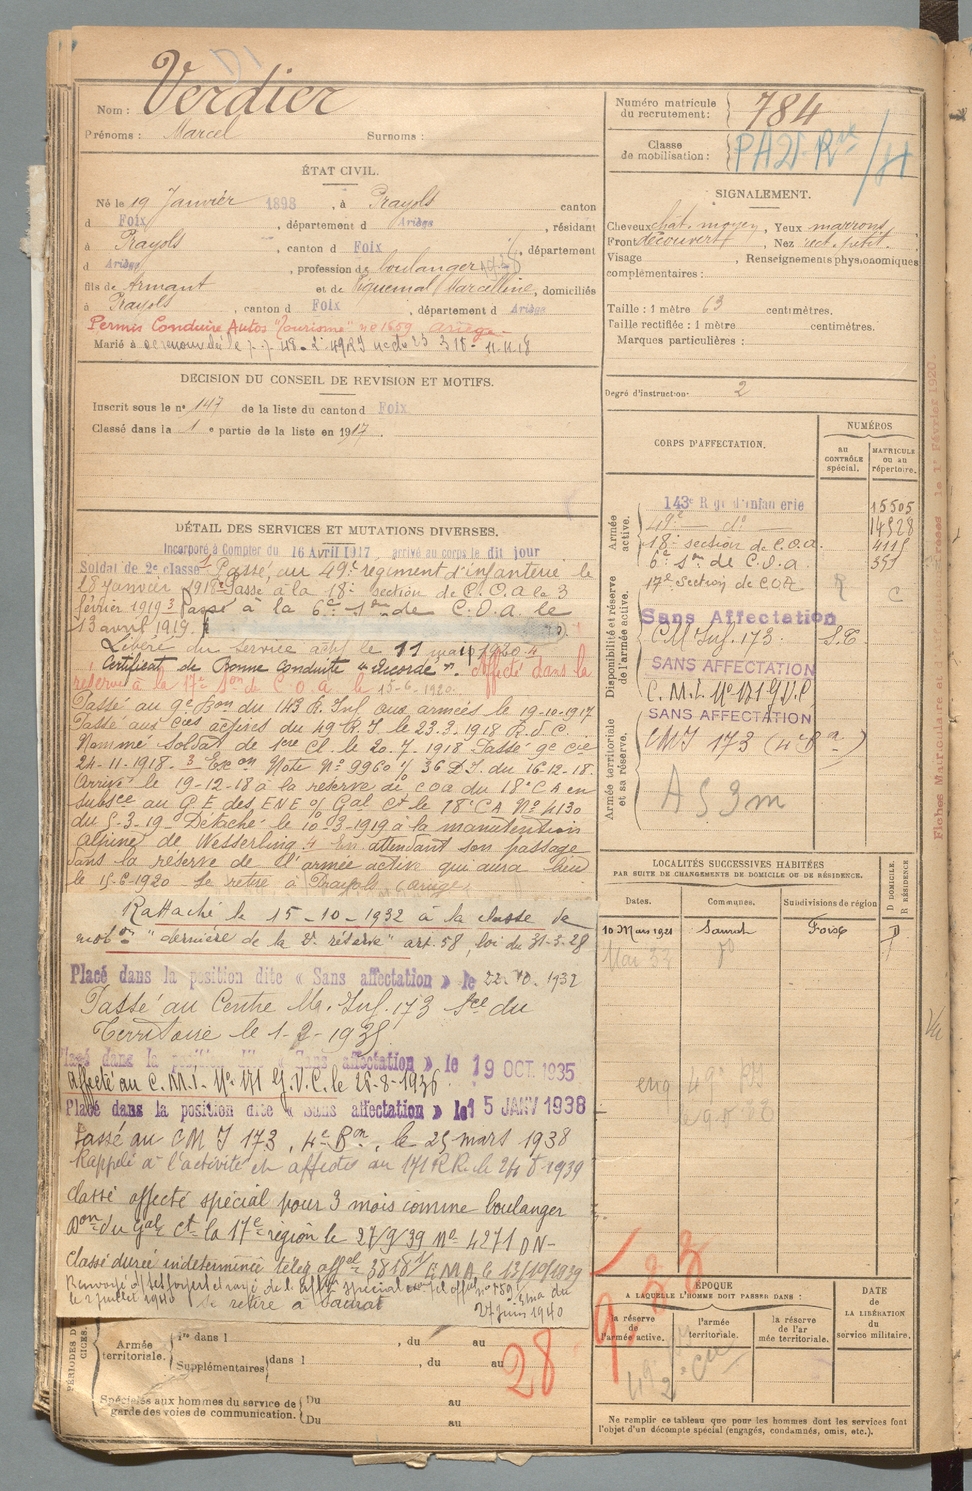 Nom : Verdier
Prénoms : Marcel Surnoms :
ÉTAT CIVIL.
Né le 19 Janvier 1898, à Prayols canton
d Foix, département d Ariège, résidant
à Prayols, canton d Foix, département
d Ariège, profession de boulanger
fils de Armant et de Piquemal Marcelline, domiciliés
à Prayols, canton d Foix, département d Ariège
Permis Conduire Autos "Tourisme" n° 1659 ariège
Marié à
DÉCISION DU CONSEIL DE REVISION ET MOTIFS.
Inscrit sous le n° 147 de la liste du canton d Foix
Classé dans la 1e partie de la liste en 1917.
DÉTAIL DES SERVICES ET MUTATIONS DIVERSES.
Incorporé à Compter du 16 Avril 1917 arrivé au corps le dit jour
Soldat de 2e classe Passé au 49e régiment d'infanterie le
18 Janvier 1918 Passé à la 18e section de C.O.A le 3
février 1919 Passé à la 6e son de C.O.a. le
13 avril 1919.
Libéré du service actif le 11 mai 1920
Certificat de Bonne Conduite "accordé". Affecté dans la
réserve à la 17e son de C O a le 15-6-1920.
Passé au 9e Bon du 143 R. Inf aux armées le 19-10-1917
Passé aux Cies actives du 49 R.I. le 23.3.1918
Nommé Soldat de 1ere Cl. le 20.7.1918 Passé 9e Cie
24-11-1918. Exon Note N° 9960 % 36 D.I. du 16-12-18.
Arrivé le 19-12-18 à la réserve de COA du 18e CA en
subsce au G E des ENE % Gal Ct le 18e CA N° 4130
du 5-3-19 Détaché le 10-3-1919 à la manutention
alpine de Wesserling. En attendant son passage
dans la réserve de l'armée active qui aura lieu
le 15-6-1920 Se retire à Prayols (ariège)
Rattaché le 15-10-1932 à la classe de
mobon "dernière de la 2e réserve" art. 58, loi du 31-3-28
Placé dans la position dite « Sans affectation » le 22.10.1932
Passé au Centre M. Inf. 173 Sce du
Territoire le 1-2-1935
Placé dans la position dite « Sans affectation » le 19 OCT. 1935
affecté au C.M.I. N° 171 G.V.C. le 28-8-1936
Placé dans la position dite « Sans affectation » le 15 JANV 1938
Passé au CM I 173, 4e Bon, le 25 mars 1938
Rappelé à l'activité et affecté au 171 RR. le 24 1939
Classé affecté spécial pour 3 mois comme boulanger
Don du Gal Ct la 17e région le 27/9/39 N° 4271 DN-
Classé durée indéterminée
le 2 juillet 1940 Se retire à Saurat 27 juin 1940
PÉRIODES D'
CICES.
Armée territoriale.
1re dans l , du au
Supplémentaires dans l , du au
Spéciales aux hommes du service de garde des voies de communication.
Du au
Du au
28
Numéro matricule du recrutement : 784
Classe de mobilisation :
SIGNALEMENT.
Cheveux chat. moyen, Yeux marrons
Front découvert, Nez rect. petit.
Visage , Renseignements physionomiques
complémentaires :
Taille : 1 mètre 63 centimètres.
Taille rectifiée : 1 mètre centimètres.
Marques particulières :
Degré d'instruction 2
CORPS D'AFFECTATION.
NUMÉROS
au CONTRÔLE spécial.
MATRICULE ou au répertoire.
Armée active.
143e R gi d'infan erie 15505
49e d° 14928
18e section de C.O.a. 4115
6e son de C.O.a 351
Disponibilité et réserve de l'armée active.
17e Section de COA R C
Sans Affectation
CM Inf. 173
SANS AFFECTATION
C.M.I. N° 171 G.V.C
Armée territoriale et sa réserve.
SANS AFFECTATION
CMI 173 (4e Bn)
LOCALITÉS SUCCESSIVES HABITÉES
PAR SUITE DE CHANGEMENTS DE DOMICILE OU DE RÉSIDENCE.
Dates. Communes. Subdivisions de région
D DOMICILE.
R RÉSIDENCE
10 Mars 1921 Saurat Foix D
ÉPOQUE
A LAQUELLE L'HOMME DOIT PASSER DANS :
la réserve de l'armée active.
l'armée territoriale.
la réserve de l'armée territoriale.
DATE de LA LIBÉRATION du service militaire.
Ne remplir ce tableau que pour les hommes dont les services font
l'objet d'un décompte spécial (engagés, condamnés, omis, etc.).